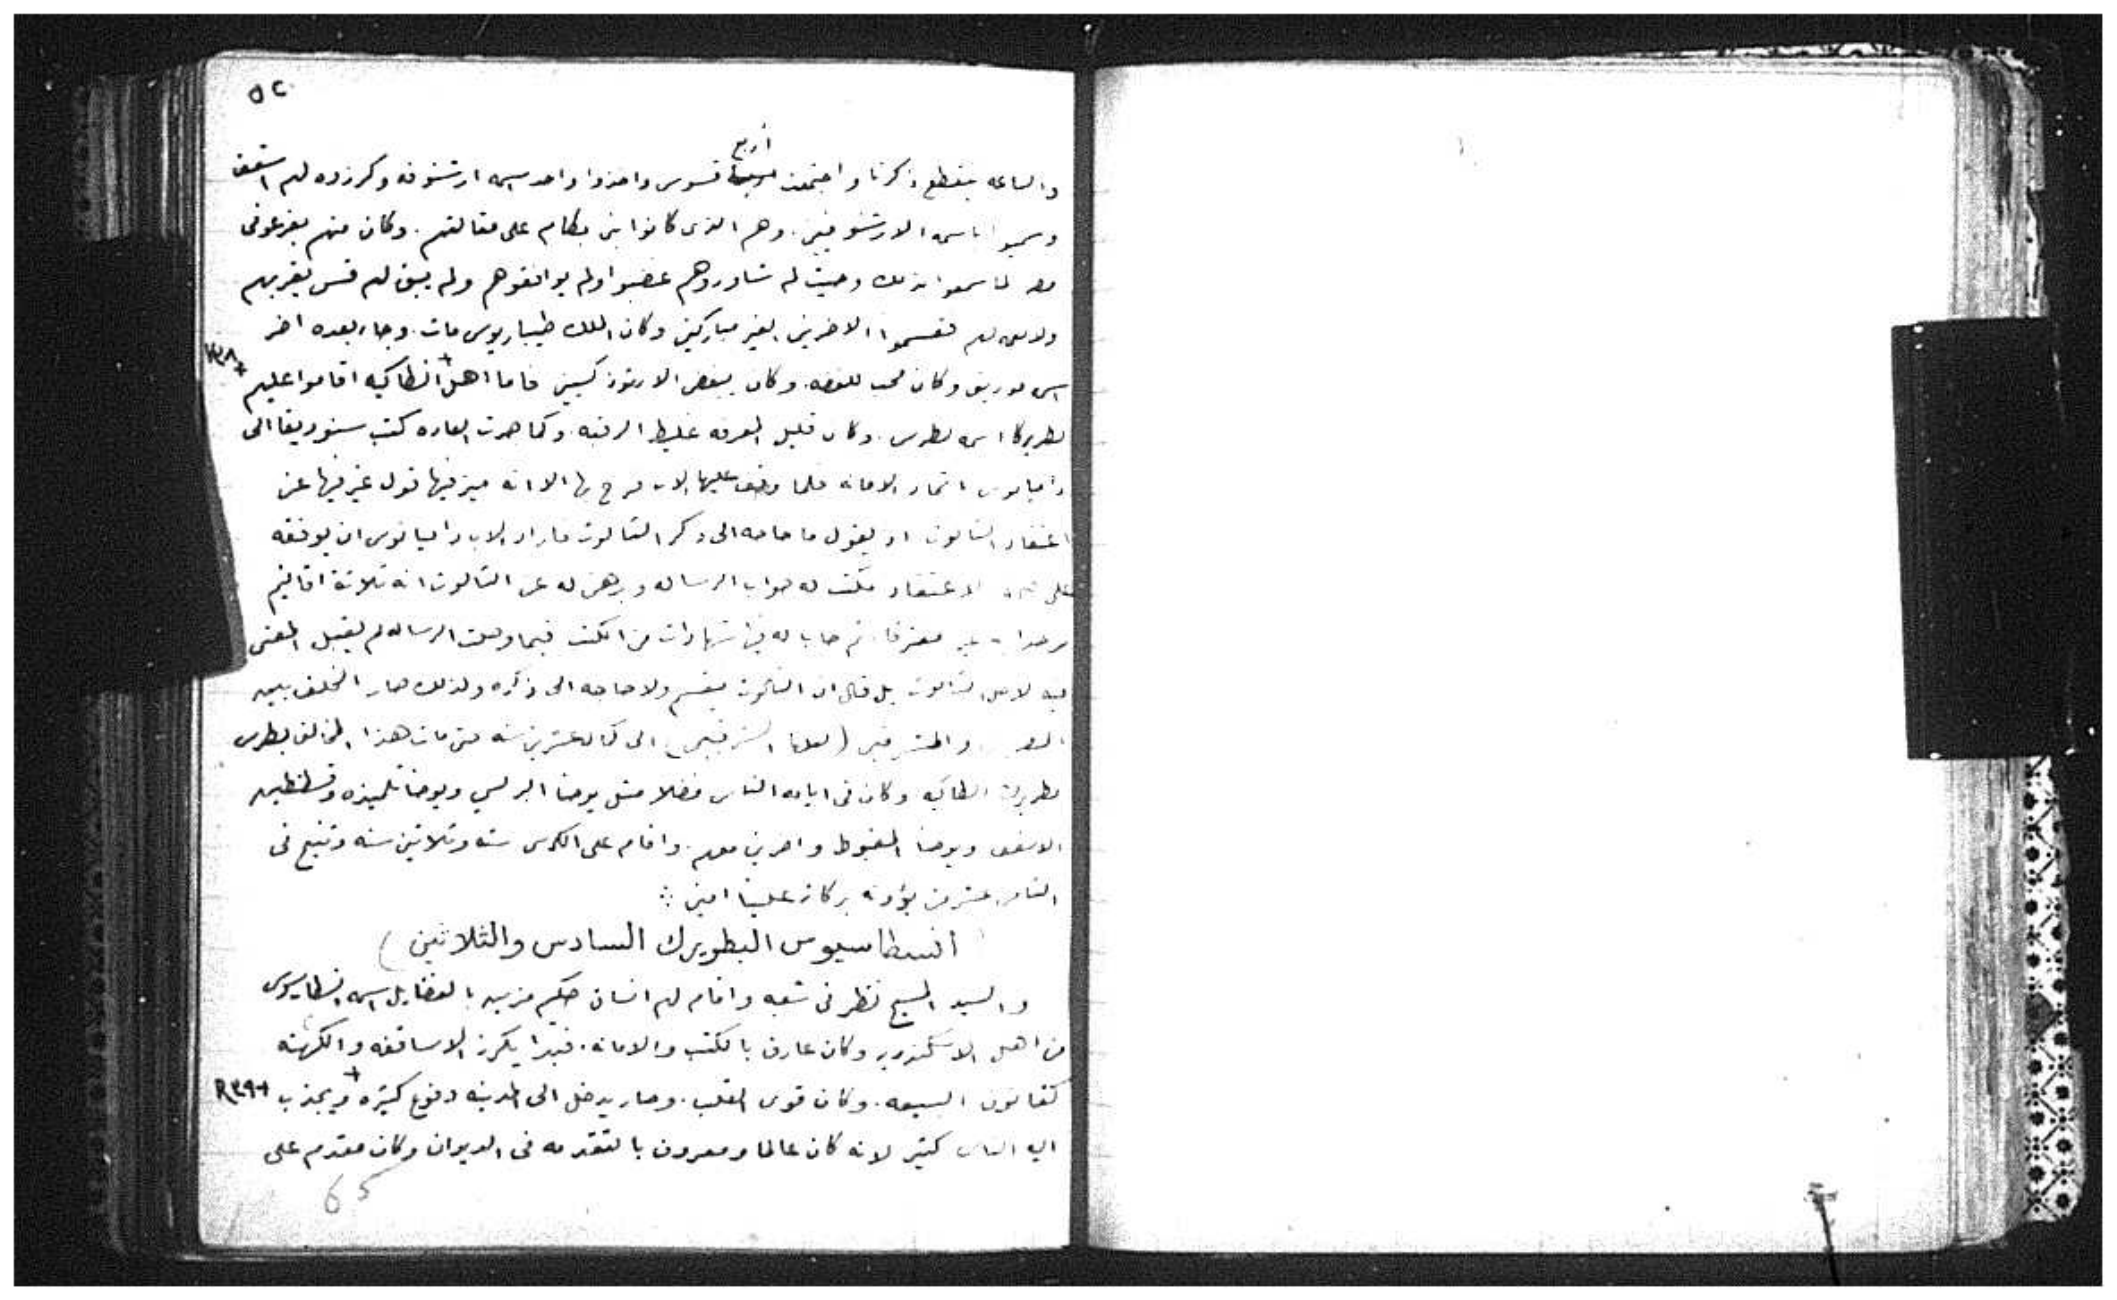 ٥٢
أربع
والساعه ينقطع ذكرنا واجتمعت قسوس واخذوا واحد اسمه ارشنوفه وكرزوه لهم اسقف
وسميوا باسمه الارشنوفيين. وهم الذى كانوا بنى بكام على مقالتهم. وكان منهم بغربى
لما سمعوا بذلك وحيث لم شاوروهم غضبوا ولم يوافقوهم ولم يبق لهم قس يقربهم
فقسموا الاخرين بغير مباركين وكان الملك طيباريوس مات. وجا بعده اخر
اسمه موريق وكان محب للفضه. وكان يبغض الارتوذكسيين فاما اهل + انطاكيه اقاموا عليهم
بطريركا اسمه بطرس. وكان قليل المعرفه غليظ الرقبه. وكما جرت العاده كتب سنوديقا الى
داميانوس اتحاد الامانه فلما وقف عليها الاب فرح بها الا انه ميز فيها قول غير فيها عن
اعتقاد الثالوث اذ يقول ما حاجه الى ذكر الثالوث فاراد الاب داميانوس ان يوقفه
على الاعتقاد فكتب له جواب الرساله وبرهن له عن الثالوث انه ثلاثة اقانيم
له فيها شهادات من الكتب فيما وصلت الرساله لم يقبل المعنى
فيه لاجل الثالوث بل قال ان الثالوث ينقسم ولا حاجه الى ذكره ولذلك صار الخلف بين
والمشرقيين (لعلها الشرقيين) الى كمال عشرين سنه حتى مات هذا المخالف بطرس
بطريرك انطاكيه وكان فى ايامه الناس فضلا مثل يوحنا البرلسي ويوحنا تلميذه وقسطنطين
الاسقف ويوحنا المغبوط واخرين معهم. واقام على الكرسى سته وثلاثين سنه وتنيح فى
الثامن عشر من بؤونه بركاته علينا امين ∴
أنسطاسيوس البطريرك السادس والثلاثين )
والسيد المسيح نظر فى شعبه واقام لهم انسان حكيم مزين بالفضايل اسمه انسطاسيوس
من اهل الاسكندريه وكان عارف بالكتب والامانه. فبدا يكرز الاساقفه والكهنه
كقانون البيعه. وكان قوى القلب. وصار يدخل الى المدينه دفوع كثيره + ويجذب
اليه الناس كثير لانه كان عالما ومعروف بالتقدمه فى الديوان وكان مقدم على
65